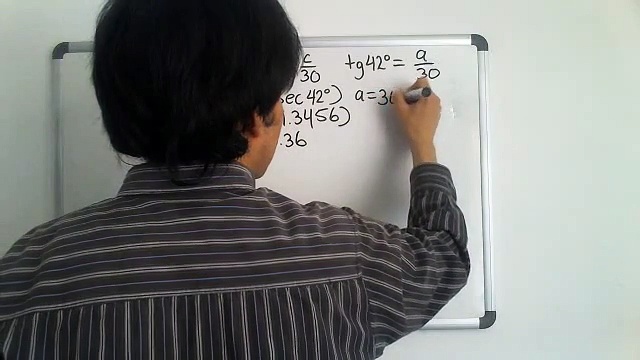 c/30 tg42° = a/30
sec 42°) a=30
1.3456)
.36